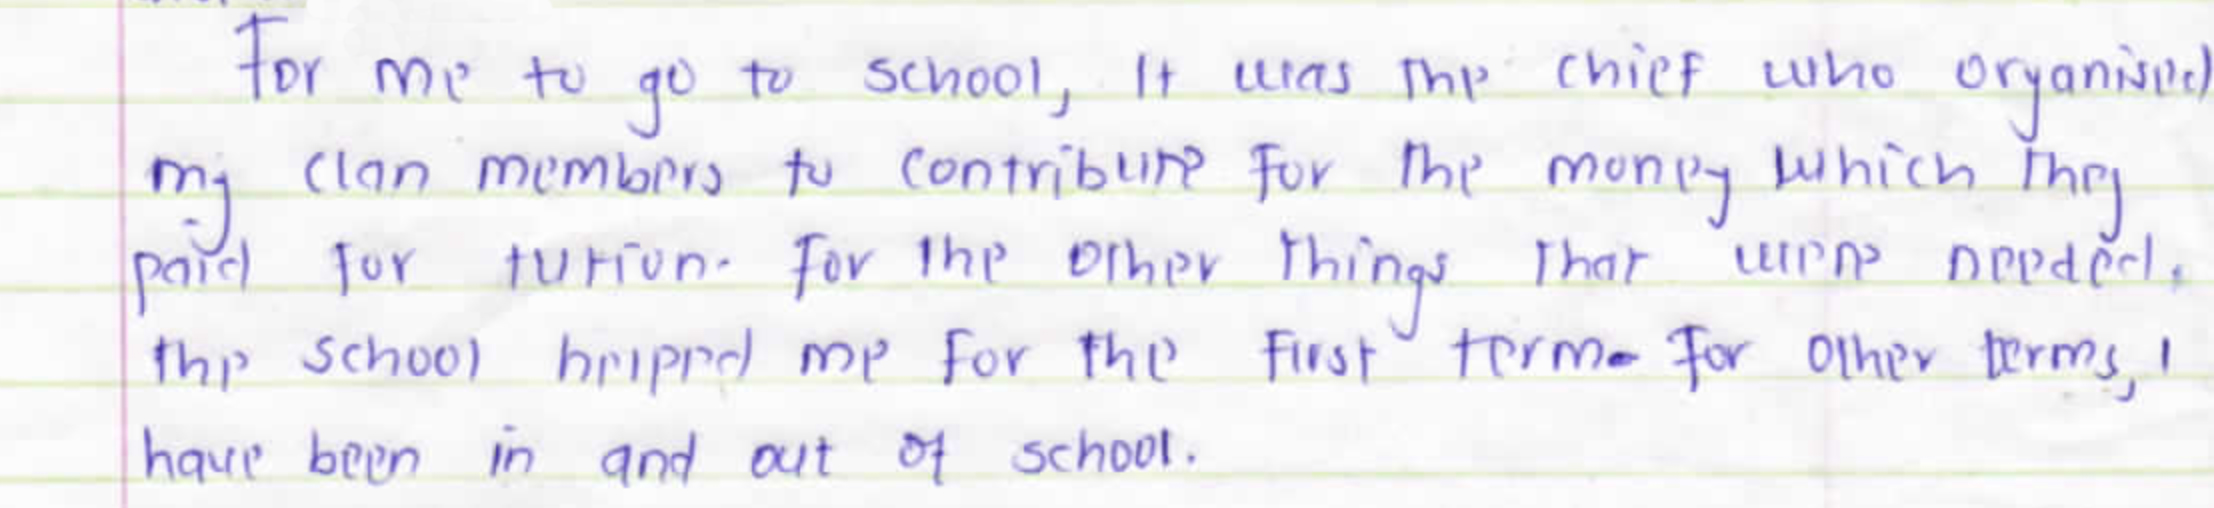 For me to go to school, It was the chief who organised
my clan members to contribute for the money which they
paid for tution. For the other things that were needed,
the school helped me for the first term. For other terms, I
have been in and out of school.